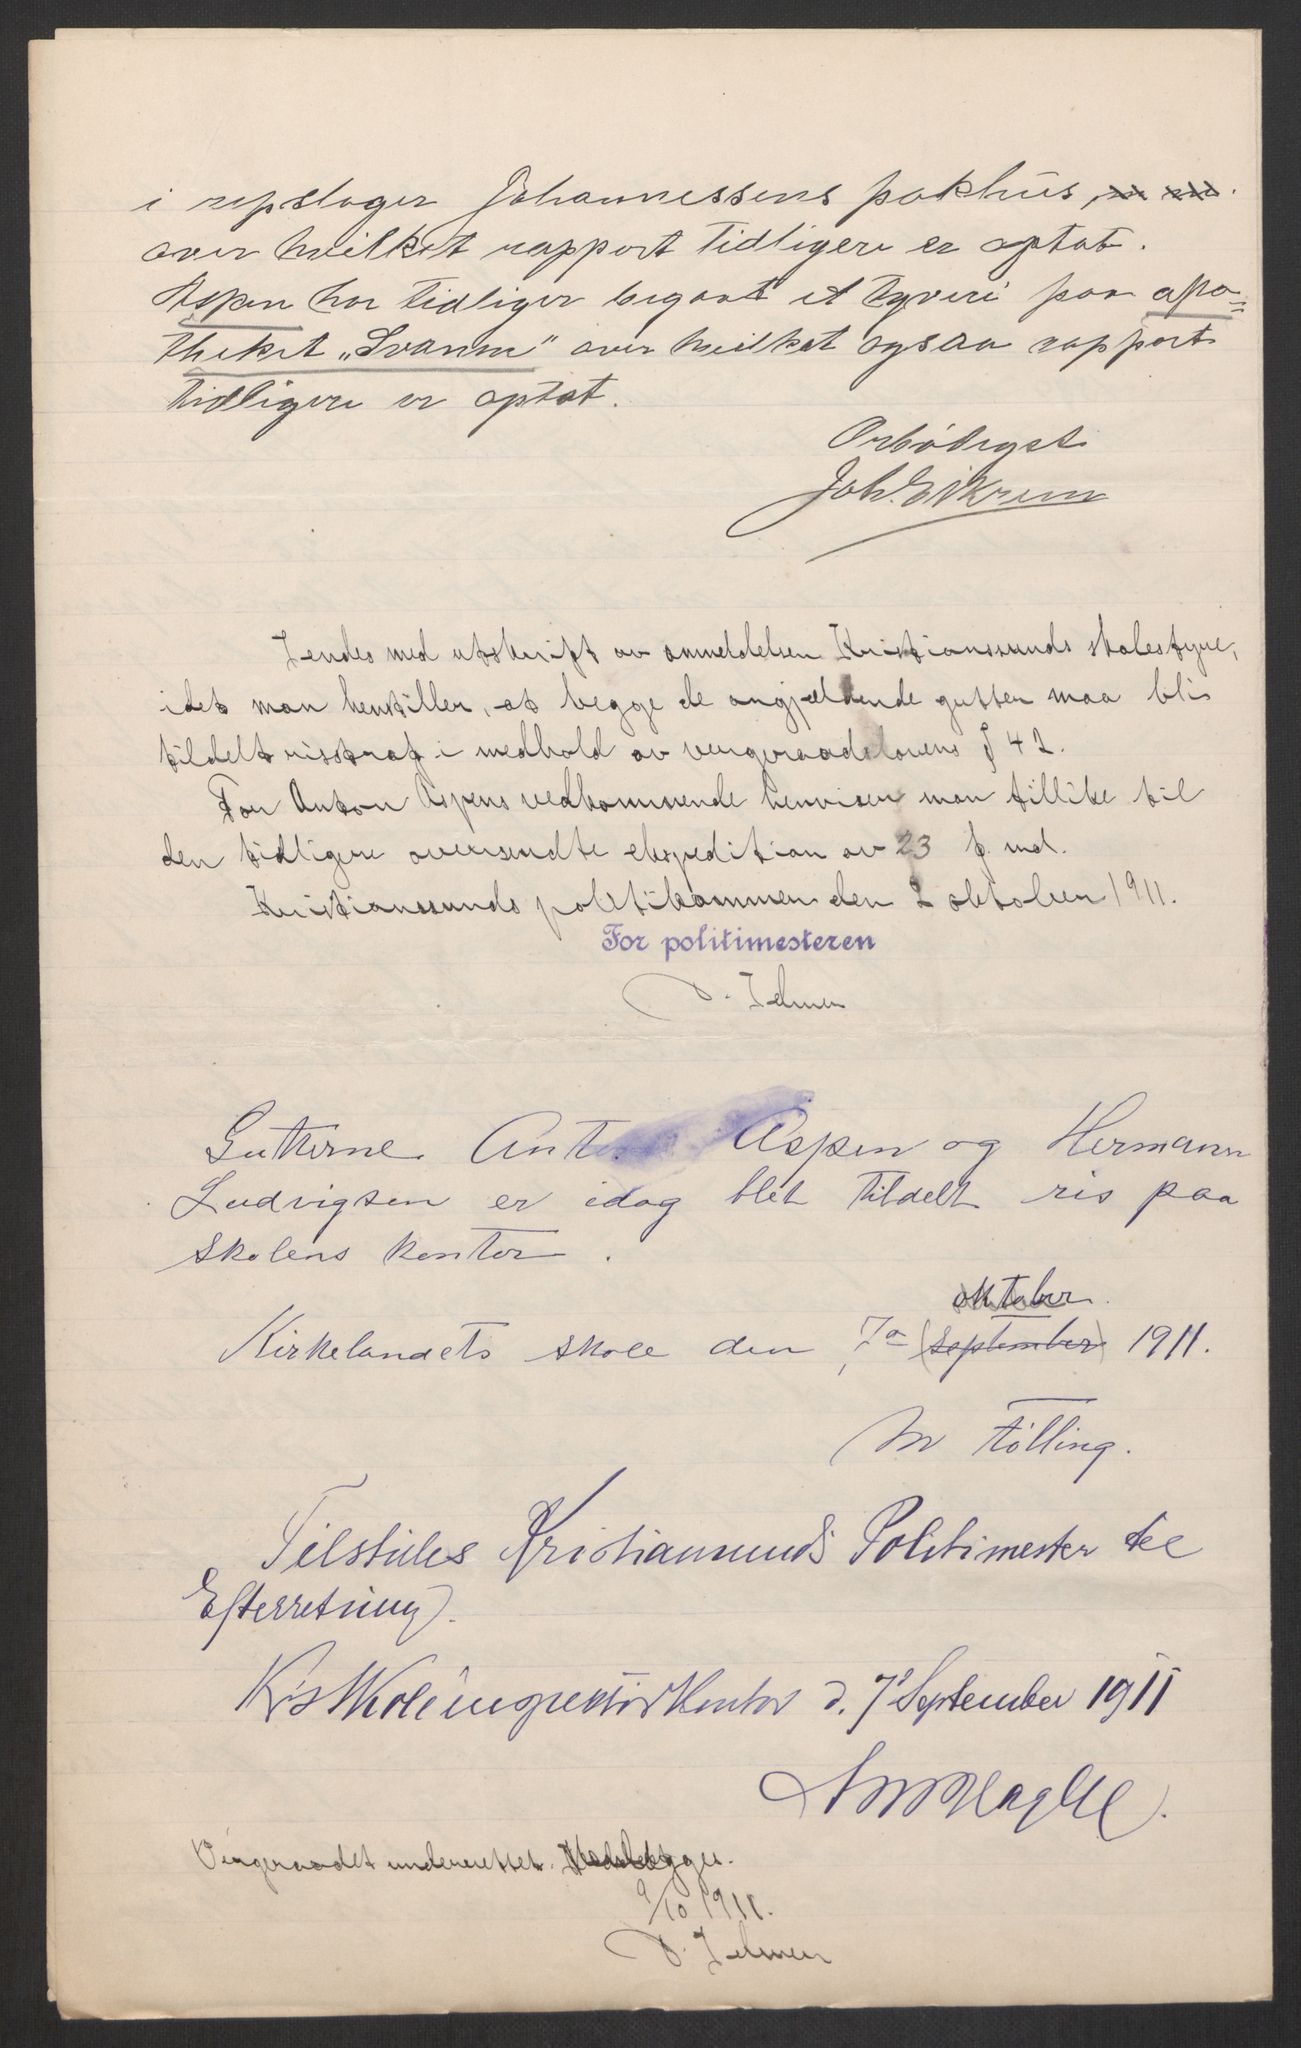 i repslager Johannessens pakhus,
over hvilket rapport tidligere er optat.
Aspen har tidliger begaat et tyveri paa apo-
theket „Svanen" over hvilket ogsaa rapport
tidligere er optat.
Ærbødigst
Joh. Eikrem
Sendes med utskrift av anmeldelsen Kristianssunds skolestyre,
idet man henstiller, at begge de angjældende gutter maa bli
tildelt risstraf i medhold av vergeraadslovens § 42.
For Anton Aspens vedkommende henviser man tillike til
den tidligere oversendte ekspedition av 23 f. md.
Kristianssunds politikammer den 2 oktober 1911.
For politimesteren
Gutterne Anton Aspen og Hermann
Ludvigsen er idag blet tildelt ris paa
skolens kontor.
oktober
Kirkelandets skole den 7de (september) 1911.
M Følling.
Tilstilles Kristianssunds Politimester til
Efterretning.
Krs Skoleinspektørkontor d. 7' September 1911
Vergeraadet underrettet. Henlægges.
9/10 1911.